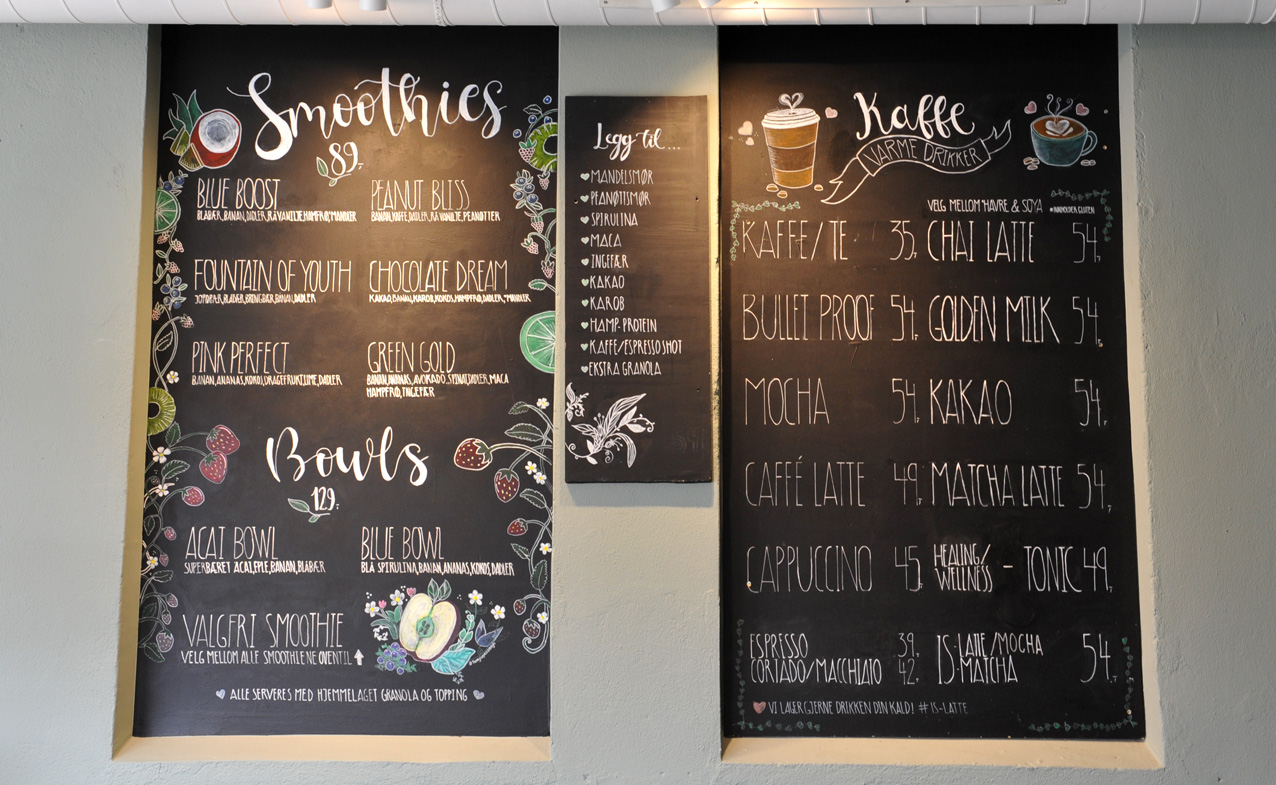 Smoothies
89,-
BLUE BOOST
BLÅBÆR, BANAN, DADLER, RÅ VANILJE, HAMPFRØ, MANDLER
PEANUT BLISS
BANAN, KAFFE, DADLER, RÅ VANILJE, PEANØTTER
FOUNTAIN OF YOUTH
JORDBÆR, BLÅBÆR, BRINGBÆR, BANAN, DADLER
CHOCOLATE DREAM
KAKAO, BANAN, KAROB, KOKOS, HAMPFRØ, DADLER, MANDLER
PINK PERFECT
BANAN, ANANAS, KOKOS, DRAGEFRUKT, LIME, DADLER
GREEN GOLD
BANAN, ANANAS, AVOKADO, SPINAT, DADLER, MACA
HAMPFRØ, INGEFÆR
Bowls
129,-
ACAI BOWL
SUPERBÆRET ACAI, EPLE, BANAN, BLÅBÆR
BLUE BOWL
BLÅ SPIRULINA, BANAN, ANANAS, KOKOS, DADLER
VALGFRI SMOOTHIE
VELG MELLOM ALLE SMOOTHIENE OVENTIL ↑
ALLE SERVERES MED HJEMMELAGET GRANOLA OG TOPPING
Legg til...
MANDELSMØR
PEANØTTSMØR
SPIRULINA
MACA
INGEFÆR
KAKAO
KAROB
HAMP-PROTEIN
KAFFE/ESPRESSO SHOT
EKSTRA GRANOLA
Kaffe
VARME DRIKKER
VELG MELLOM *HAVRE & SOYA *INNEHOLDER GLUTEN
KAFFE/TE 35,
CHAI LATTE 54,
BULLET PROOF 54,
GOLDEN MILK 54,
MOCHA 54,
KAKAO 54,
CAFFÉ LATTE 49,
MATCHA LATTE 54,
CAPPUCCINO 45,
HEALING/
WELLNESS - TONIC 49,
ESPRESSO 39,
CORTADO/MACCHIATO 42,
IS-LATTE/MOCHA
IS-MATCHA 54,
VI LAGER GJERNE DRIKKEN DIN KALD! #IS-LATTE